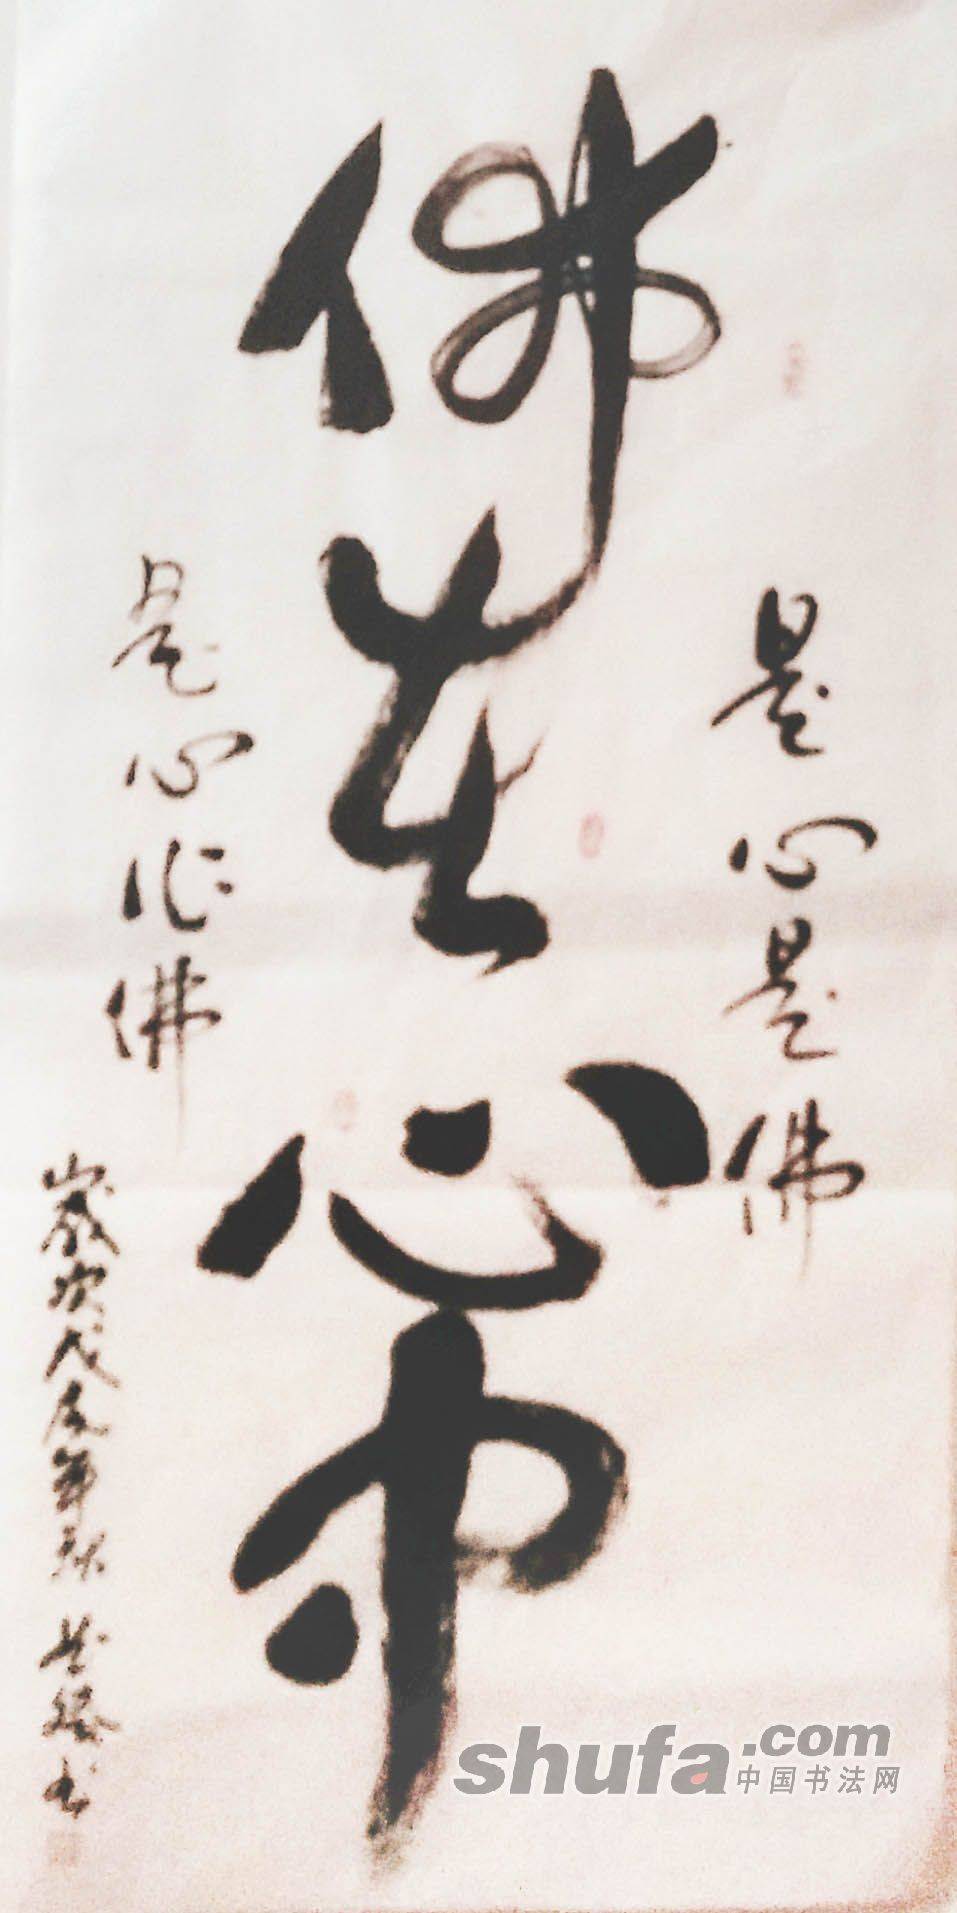 佛在心中
是心是佛
是心作佛
岁次戊戌年秋
书
shufa.com
中国书法网